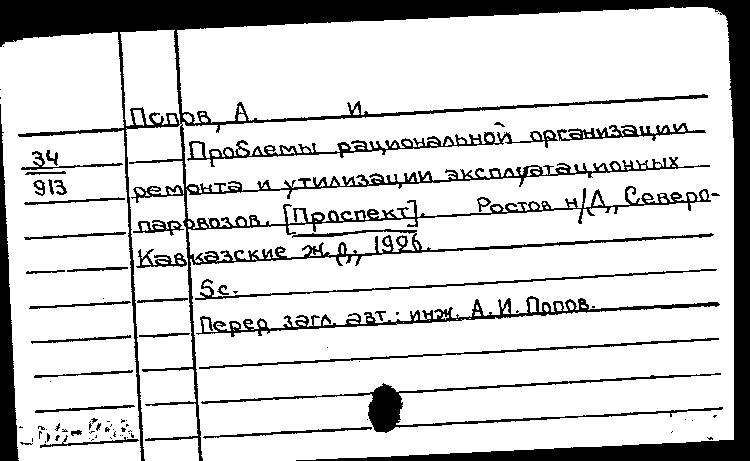 Попов, А. И.
34
913
Проблемы рациональной организации
ремонта и утилизации эксплуатационных
паровозов. [Проспект]. Ростов н/Д, Северо-
Кавказские ж.д., 1926.
5с.
Перед загл. авт.: инж. А.И. Попов.